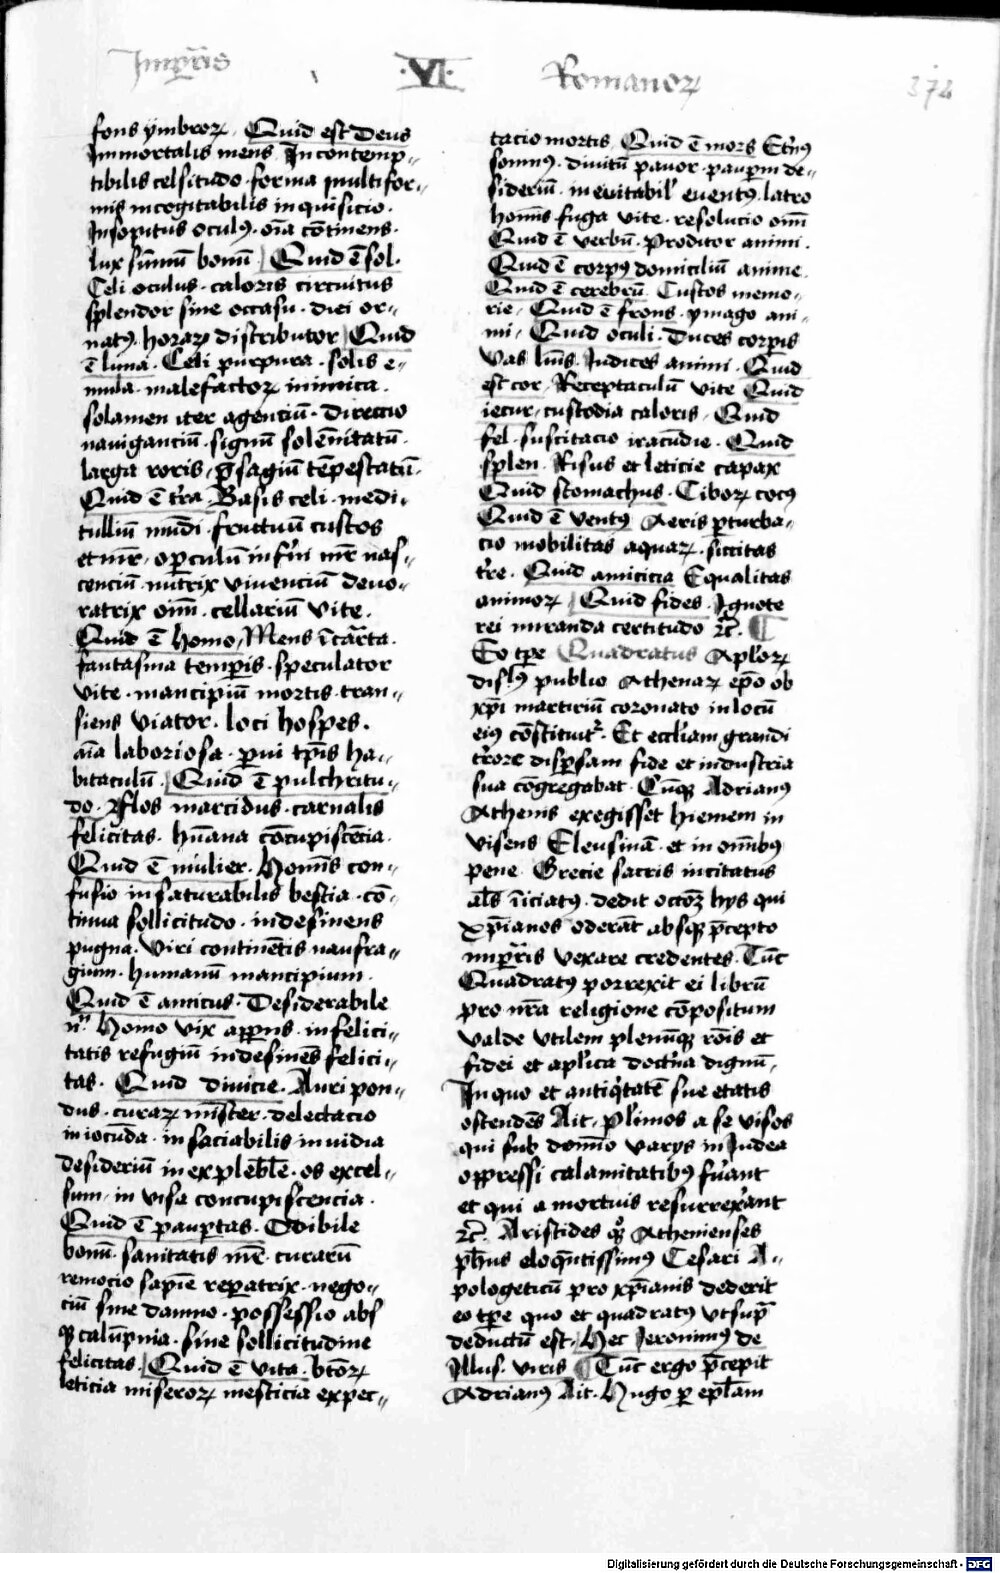 Imꝑr̄is
·VI·
Romanoꝝ
374
fons ymbroꝝ. Quid est Deus
Immortalis mens. Incontemp-
tibilis celsitudo. forma multifor-
mis incogitabilis inquisicio.
Insopitus oculꝰ. oīa cōtinens.
lux sūmū bonū Quid ē sol.
Celi oculus. caloris circuitus
splendor sine occasu. diei or-
natꝰ. horaꝝ distributor Quid
ē luna. Celi purpura. solis e-
mula. malefactoꝝ inimica.
solamen iter agenciū. Directio
nauiganciū. signū solēnitatū.
larga roris. p̄sagiū tēpestatū.
Quid ē t'ra. Basis celi. medi-
tulliū mūdi. fructuū custos
et mr̄. opculū inf'ni mr̄ nas-
cenciū. nutrix viuenciū deuo-
ratrix oīm. cellariū vite.
Quid ē homo. Mens īcar̄ta.
fantasma temꝑis. speculator
vite. mancipiū mortis. tran-
siens viator. loci hospes.
aīa laboriosa. ꝑui tp̄is ha-
bitaculū. Quid ē pulchritu-
do. Flos marcidus. carnalis
felicitas. hūana cōcupiscēcia.
Quid ē mulier. Homīs con-
fusio insaturabilis bestia. cō-
tinua sollicitudo. indesinens
pugna. viri continētis naufra-
gium. humanū mancipium.
Quid ē amicus. Desiderabile
nᵐ. Homo vix apꝑns. infelici-
tatis refugiū indesinēs felici-
tas. Quid diuicie. Auri pon-
dus. curaꝝ mīster. delectacio
in iocūda. insaciabilis inuidia
desideriū inexplebłe. os excel-
sum. in visa concupiscencia.
Quid ē pauꝑtas. Odibile
bonū. sanitatis mr̄. curarū
remocio sapiē reꝑatrix. nego-
ciū sine damno. possessio abs
qꝫ calūpnia. sine sollicitudine
felicitas. Quid ē vita. btōꝝ
leticia miseroꝝ mesticia expec-
tacio mortis. Quid ē mors Et'nꝰ
somnꝰ. diuitū pauor. pauꝑm de-
sideriū. ineuitabil' euentꝰ. latro
homīs. fuga vite. resolucio oīm
Quid ē verbū. Proditor animi.
Quid ē corpꝰ domiciliū anime.
Quid ē cerebrū. Custos memo-
rie. Quid ē frons. ymago ani-
mi. Quid oculi. Duces corꝑis
Vas lūīs. Iudices animi. Quid
est cor. Receptaculū vite Quid
iecur. custodia caloris. Quid
fel. suscitacio iracūdie. Quid
splen. Risus et leticie capax
Quid stomachus. Ciboꝝ cocꝰ
Quid ē ventꝰ Aeris ꝑturba-
cio mobilitas aquaꝝ. siccitas
t're. Quid amicicia Equalitas
animoꝝ Quid fides. Ignote
rei miranda certitudo ꝛc̄. ¶
Eo tꝑe Quadratus Apl'oꝝ
disl'ꝰ publio Athenaꝝ ep̄o ob
xp̄i martirium coronato in locū
eiꝰ cōstituit'. Et eccl'iam grandi
t'rore disꝑsam fide et industria
sua cōgregabat. Cūqꝫ Adrianꝰ
Athenis exegisset hiemem in
visens Eleusinā. et in omībꝰ
pene Grecie sacris incitatus
als īiciatꝰ. dedit occōꝫ hys qui
xp̄ianos oderāt absqꝫ p̄cepto
imꝑr̄is vexare credentes. Tūc
Quadratꝰ porrexit ei librū
pro nr̄a religione cōpositum
valde vtilem plenūqꝫ rōīs et
fidei et apl'ica doct'na dignū.
In quo et antiq'tatē sue etatis
ostendēs Ait. plīmos a se visos
qui sub domīo varys in Iudea
oppressi calamitatibꝰ fu'ant
et qui a mortuis resurrex'ant
ꝛc̄. Aristides qꝫ Athenienses
ph̄us eloq̄ntissimꝰ Cesari A-
pologeticū pro xp̄ianis dederit
eo tꝑe quo et quadratꝰ vt sup̄
deductū est. Hec Ieronimꝰ de
Illus. viris ¶ Tūc ergo p̄cepit
Adrianꝰ Ait. Hugo ꝑ epl'am
Digitalisierung gefördert durch die Deutsche Forschungsgemeinschaft - DFG